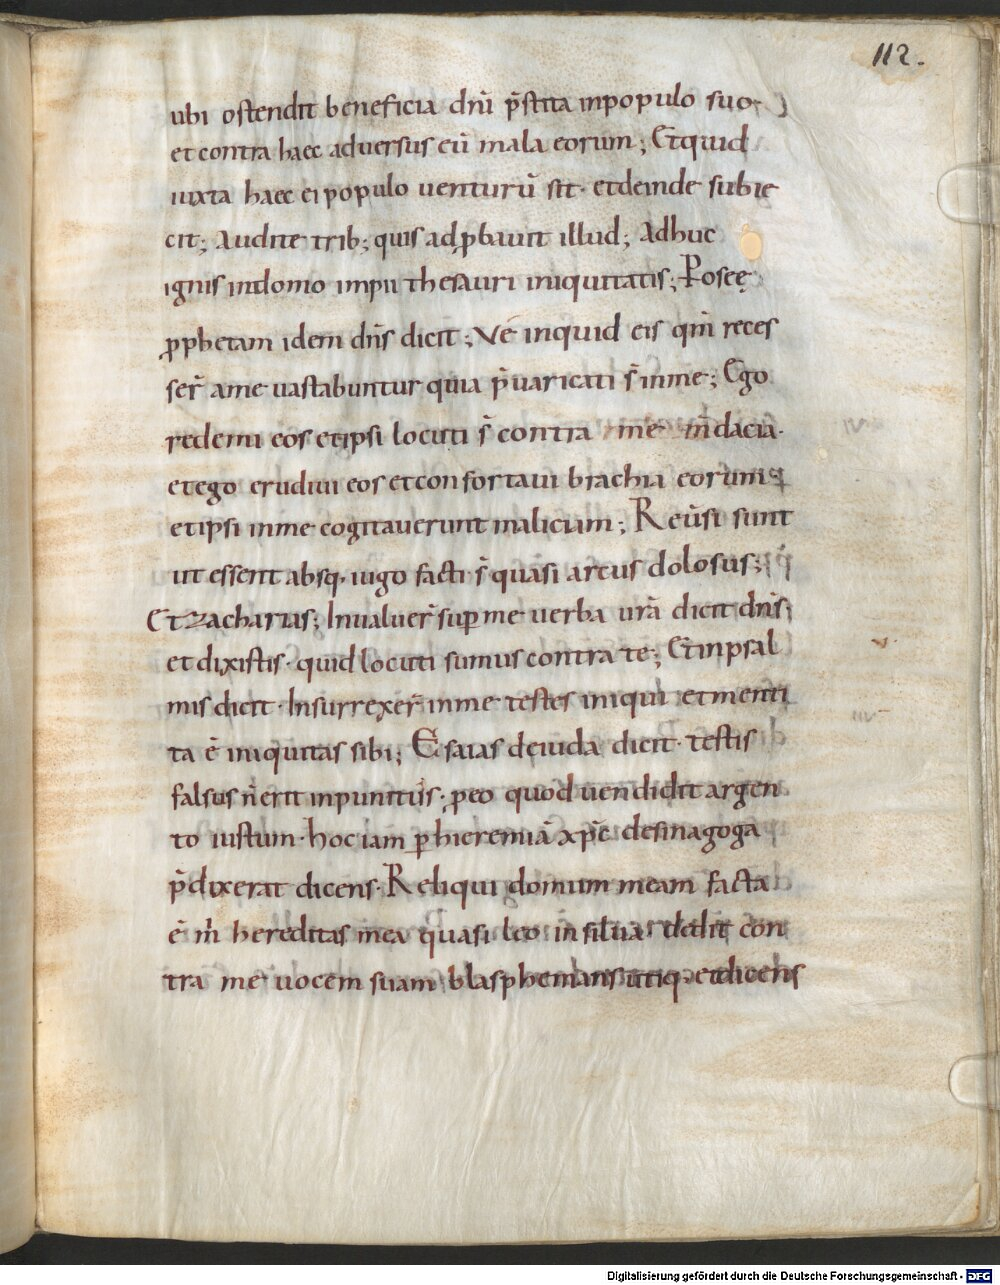 112.
ubi ostendit beneficia dnī p̄stita inpopulo suo
et contra haec adversus eū mala eorum; Etquid
iuxta haec ei populo venturū sit· etdeinde subie
cit; Audite trib; quis adꝓbavit illud; Adhuc
ignis indomo impii thesauri iniquitatis; Poseę
ꝓphetam idem dns̄ dicit; Vę inquid eis qm̄ reces
ser̄ ame vastabuntur quia p̄varicati s̄ inme; Ego
redemi eos etipsi locuti s̄ contra me m̄dacia·
etego erudivi eos etconfortavi brachia eorum
etipsi inme cogitaverunt malicium; Reūsi sunt
ut essent absq· iugo facti s̄ quasi arcus dolosus;
Et Zacharias; Invaluer̄ suꝑ me verba urā dicit dns̄;
et dixistis· quid locuti sumus contra te; Et inpsal
mis dicit· Insurrexer̄ inme testes iniqui etmenti
ta ē iniquitas sibi; Esaias deiuda dicit· testis
falsus n̄ erit inpunitus· ꝓeo quod vendidit argen
to iustum· hoc iam ꝑ hieremiā xp̄c desinagoga
p̄dixerat dicens· Reliqui domum meam facta
ē m̄ hereditas mea quasi leo in silua dedit con
tra me vocem suam blasphemans utiq· etdicens
Digitalisierung gefördert durch die Deutsche Forschungsgemeinschaft - DFG